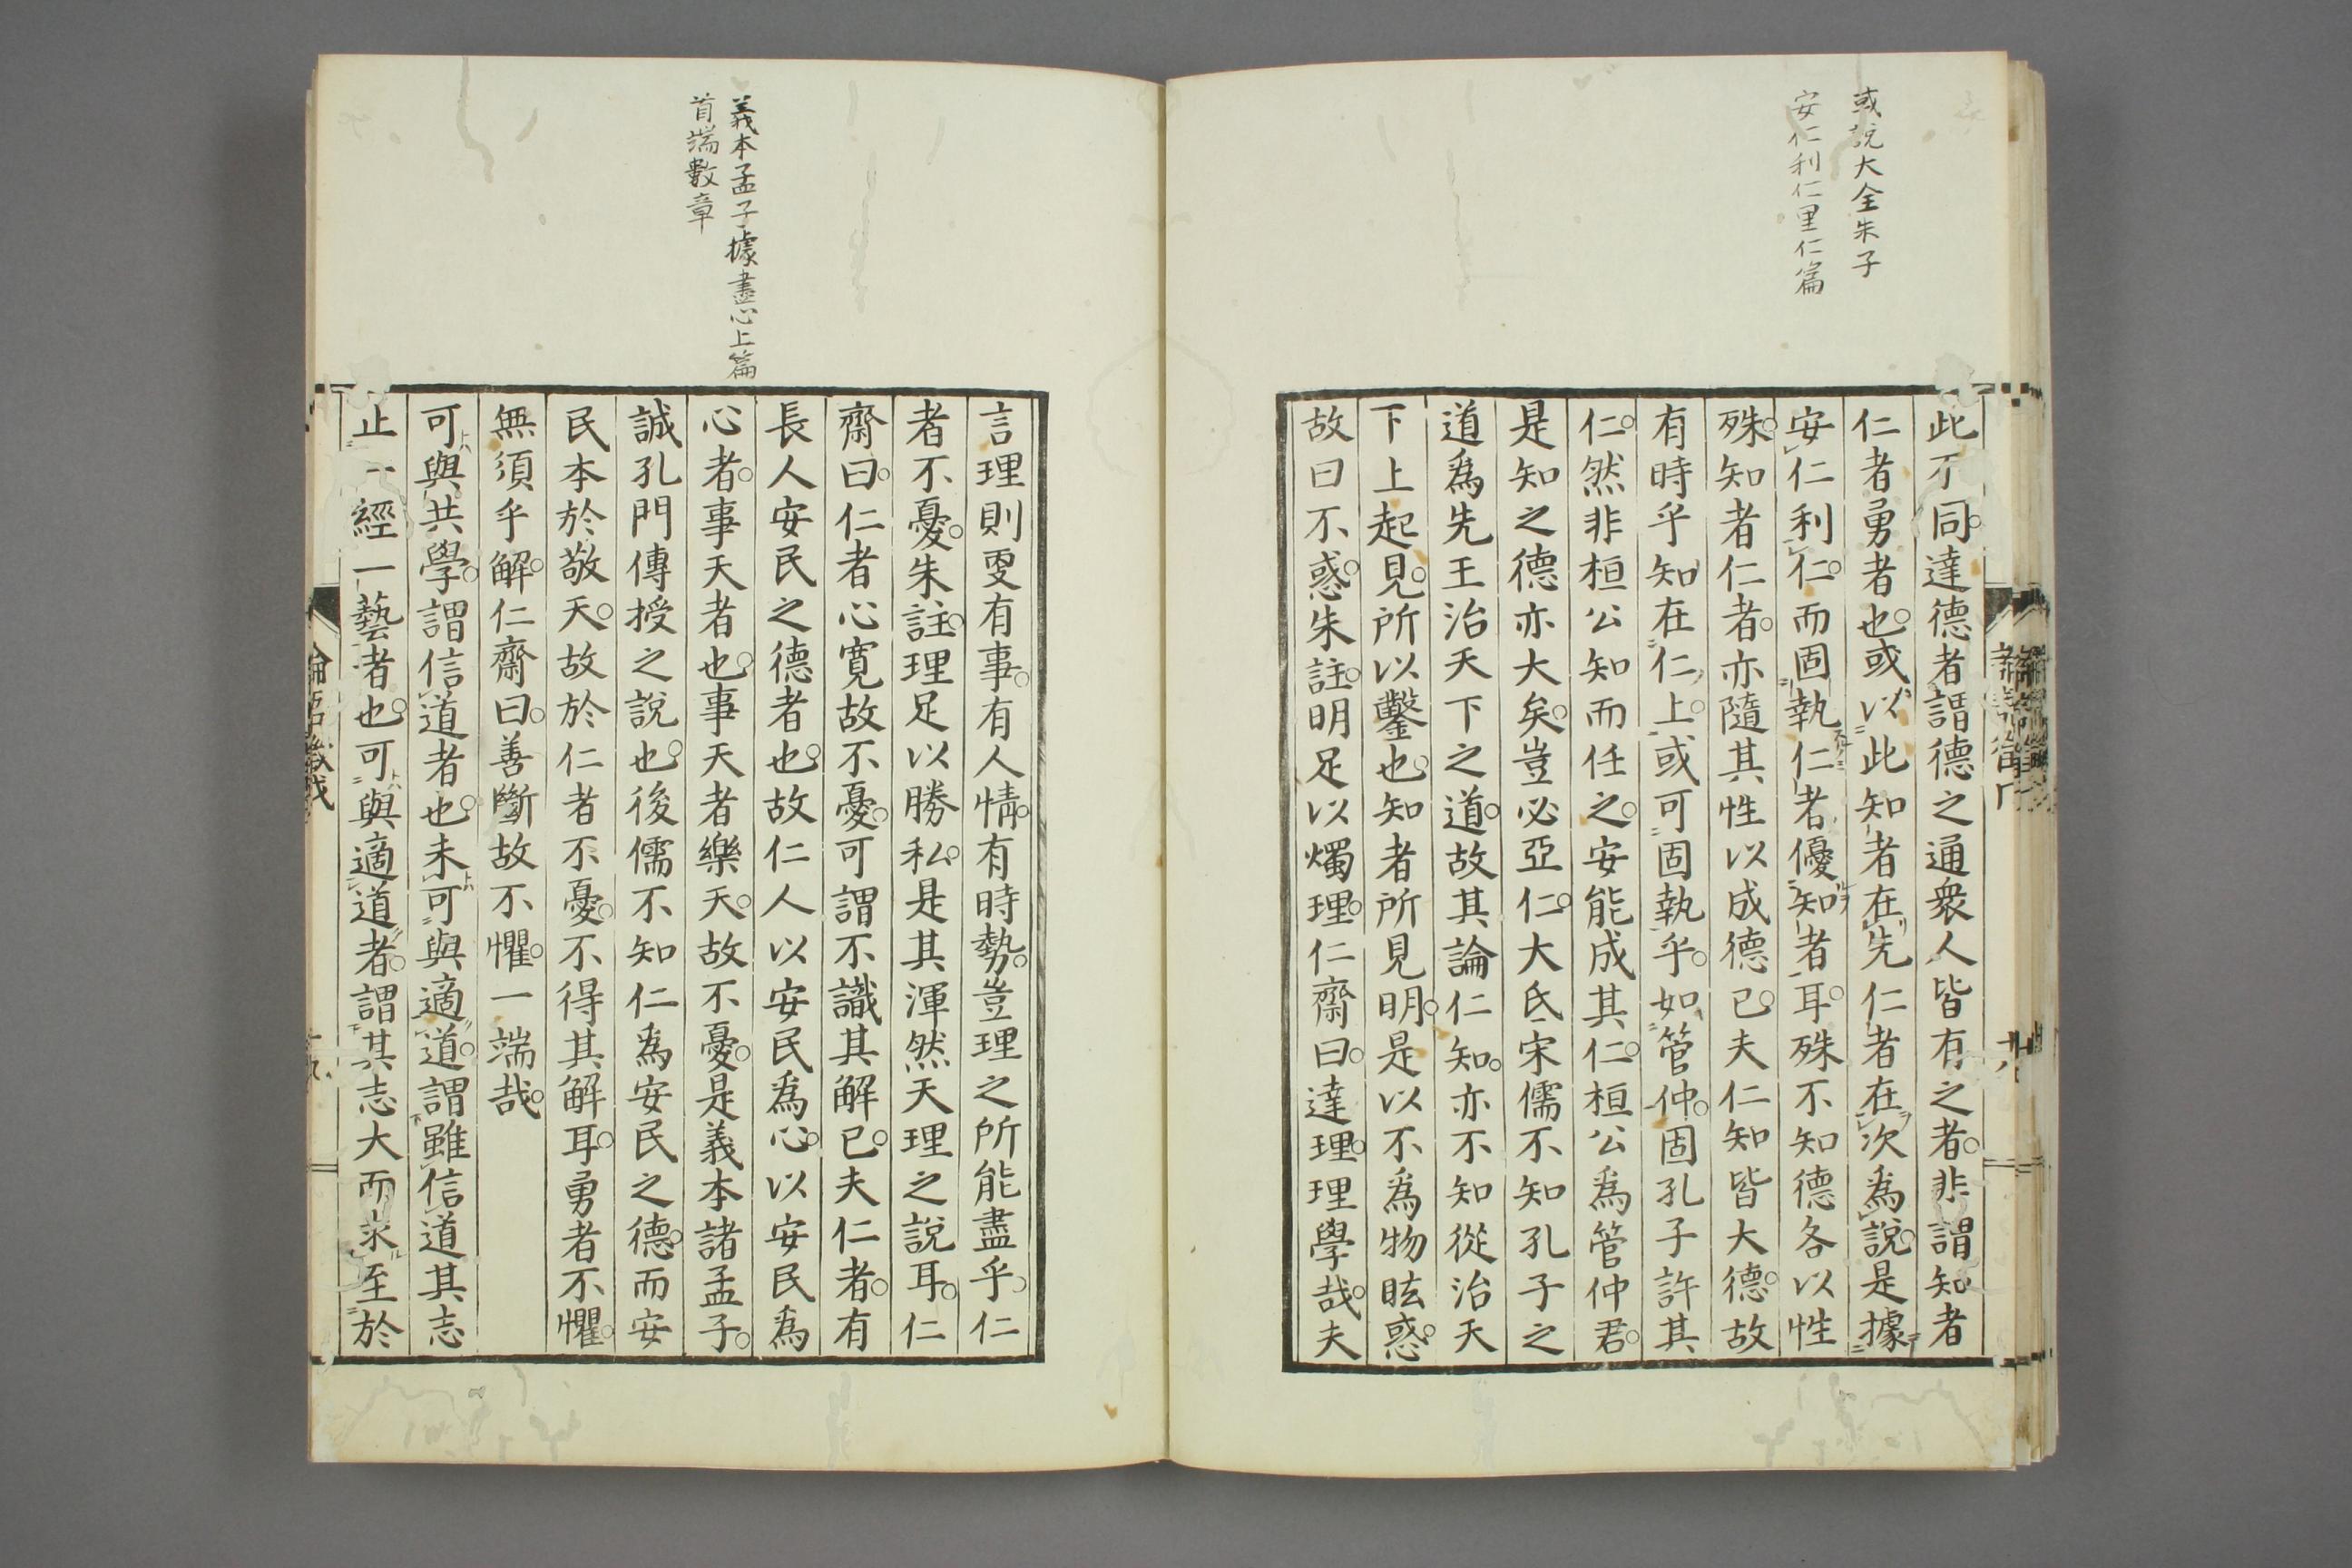 或説大全朱子
安仁利仁里仁篇
此不同達德者謂德之通衆人皆有之者非謂知者
仁者勇者也或以此知者在先仁者在次爲說是據
安仁利仁而固執仁者優知者耳殊不知德各以性
殊知者仁者亦隨其性以成德已夫仁知皆大德故
有時乎知在仁上或可固執乎如管仲固孔子許其
仁然非桓公知而任之安能成其仁桓公爲管仲君
是知之德亦大矣豈必亞仁大氐宋儒不知孔子之
道爲先王治天下之道故其論仁知亦不知從治天
下上起見所以鑿也知者所見明是以不爲物眩惑
故曰不惑朱註明足以燭理仁齋曰達理理學哉夫
義本孟子據盡心上篇
首端數章
言理則更有事有人情有時勢豈理之所能盡乎仁
者不憂朱註理足以勝私是其渾然天理之說耳仁
齋曰仁者心寛故不憂可謂不識其解已夫仁者有
長人安民之德者也故仁人以安民爲心以安民爲
心者事天者也事天者樂天故不憂是義本諸孟子
誠孔門傳授之說也後儒不知仁爲安民之德而安
民本於敬天故於仁者不憂不得其解耳勇者不懼
無須乎解仁齋曰善斷故不懼一端哉
可與共學謂信道者也未可與適道謂雖信道其志
止一經一藝者也可與適道者謂其志大而求至於